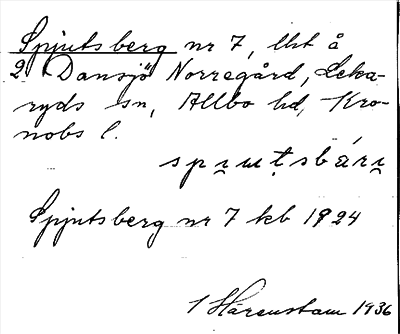 Spjutsberg nr 7, lht å
2 Dansjö Norregård, Leka-
ryds sn, Allbo hd, Kro-
nobs l.
spi̯ut̞sbári̯
Spjutsberg nr 7 kb 1924
1 Härenstam 1936